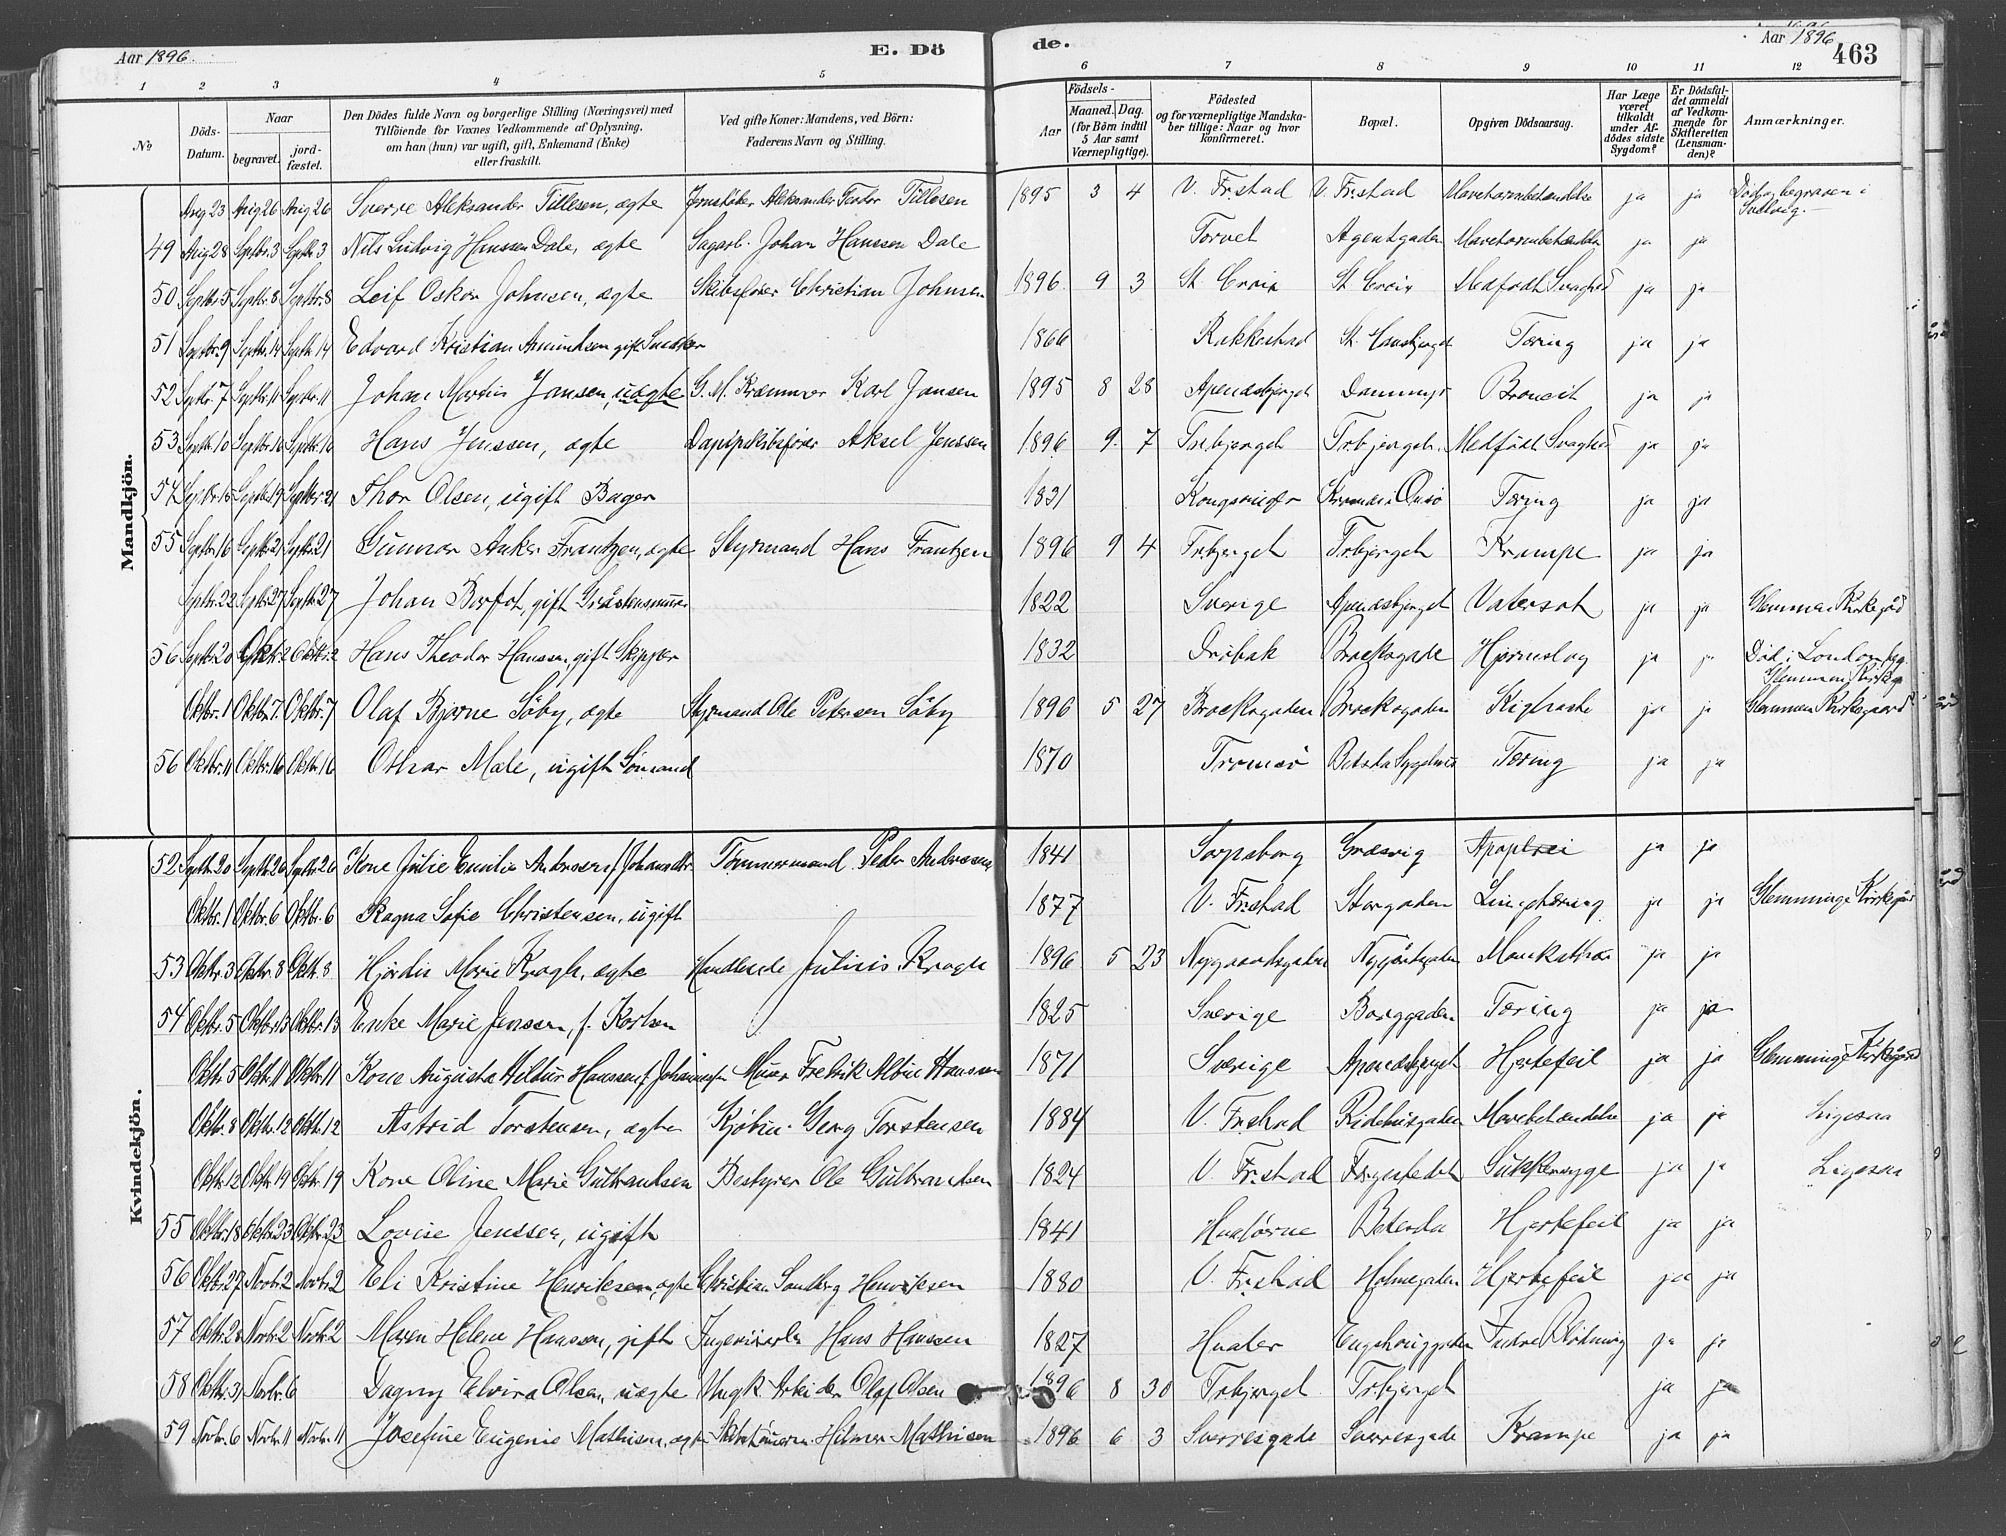 Aar 1896. E. Dö de. Aar 1896 463
1 2 3 4 5 6 7 8 9 10 11 12
No
Döds-Datum.
Naar begravet. jord-fæstet.
Den Dödes fulde Navn og borgerlige Stilling (Næringsvei) med Tilföiende for Voxnes Vedkommende af Oplysning, om han (hun) var ugift, gift, Enkemand (Enke) eller fraskilt.
Ved gifte Koner: Mandens, ved Börn: Faderens Navn og Stilling.
Födsels-
Aar Maaned. Dag. (for Börn indtil 5 Aar samt Værnepligtige).
Födested og for værnepligtige Mandskaber tillige: Naar og hvor konfirmeret.
Bopæl.
Opgiven Dödsaarsag.
Har Læge været tilkaldt under Afdödes sidste Sygdom?
Er Dödsfaldet anmeldt af Vedkommende for Skifteretten (Lensmanden)?
Anmærkninger.
Mandkjön.
Aug 23 Aug 26 Aug 26 Sverre Aleksander Tillesen, ægte Aleksander Teodor Tillesen 1895 3 4 V. Fr.stad V. Fr.stad ja ja Död og begraven i Svelvig.
49 Aug 28 Septbr. 3 Septbr 3 Nils Ludvig Hanssen Dale, ægte Sagarb. Johan Hanssen Dale Torvet Agentgaden ja ja
50 Septbr 5 Septbr 8 Septbr. 8 Leif Oskar Johnsen, ægte Skibsförer Christian Johnsen 1896 9 3 St Croix St Croix Medfödt Svaghed ja ja
51 Septbr. 9 Septbr. 14 Septbr 14 Edvard Kristian Amundsen gift Snedker 1866 Rakkestad St. Hansbjerget Tæring ja ja
52 Septbr. 7 Septbr. 11 Septbr. 11 Johan Martin Jansen, uægte G. M. Kræmmer Karl Jansen 1895 8 28 Apenæsbjerget Dammyr Bronkit ja ja
53 Septbr 10 Septbr. 16 Septbr 16 Hans Jenssen, ægte Dampskibsförer Aksel Jenssen 1896 9 7 Trbjerget Trbjerget Medfödt Svaghed ja ja
54 Septbr 15 Septbr 19 Septbr 21 Thor Olsen, ugift Bager 1831 Kongsvinger Onsö Tæring ja ja
55 Septbr. 16 Septbr 21 Septbr. 21 Gunnar Anker Frantzen, ægte Styrmand Hans Frantzen 1896 9 4 Trbjerget Trbjerget Krampe ja ja
Septbr. 22 Septbr. 27 Septbr. 27 Johan Berfot, gift Gråstensmurer 1822 Sverige Apenæsbjerget Vatersot ja ja Glemmen Kirkegård
56 Septbr. 20 Oktbr. 2 Oktbr. 2 Hans Theodor Hanssen, gift Skipper 1832 Dröbak Brocksgade Hjerneslag ja ja Död i London, beg. Glemmen Kirkeg.
Oktbr. 1 Oktbr 7. Oktbr. 7 Olaf Bjarne Söby, ægte Styrmand Ole Petersen Söby 1896 5 27 Brocksgaden Brocksgaden Kighoste ja ja Glemmen Kirkegaard
56 Oktbr. 11 Oktbr. 16 Oktbr. 16 Othar Male, ugift Sömand 1870 Tromsö Betesta Sygehus Tæring ja ja
Kvindekjön.
52 Septbr 20 Septbr 26 Septbr 26 Kone Julie Emilie Andersen f. Johannes Tömmermand Peder Andersen 1841 Sarpsborg Græsvig Apoplexi ja ja
Oktbr. 1 Oktbr. 6 Oktbr. 6 Ragna Sofie Christensen, ugift 1877 V. Fr.stad Storgaden Lungetæring ja ja Glemminge Kirkegård
53 Oktbr. 3 Oktbr. 8 Oktbr. 8 Hjördis Marie Krogh, ægte Handlende Julius Krogh 1896 5 23 Nygaardsgaden Nygårdsgaden Mavekatharr ja ja
54 Oktbr. 5 Oktbr. 13 Oktbr. 13 Enke Marie Jenssen, f. Karlsen 1825 Sverige Borggaden Tæring ja ja
Oktbr. 5 Oktbr. 11 Oktbr. 11 Kone Augusta Hildur Hanssen f. Johannesen Murer Fredrik Albin Hanssen 1871 Sverige Apenæsbjerget Hjertefeil ja ja Glemminge Kirkegård
Oktbr. 8 Oktbr. 12 Oktbr. 12 Astrid Torstensen, ægte Kjöbm. Georg Torstensen 1884 V. Fr.stad Ridehusgaden Mavebetændelse ja ja Ligesaa
Oktbr. 12 Oktbr. 19 Oktbr. 19 Kone Oline Marie Gulbrandsen Bestyrer Ole Gulbrandsen 1824 V. Fr.stad Færgestedet Sukkersyge ja ja Ligesaa
55 Oktbr. 18 Oktbr. 23 Oktbr. 23 Lovise Jenssen, ugift 1841 Hvalörne Betesda Hjertefeil ja ja
56 Oktbr. 27 Novbr. 2 Novbr. 2 Eli Kristine Henriksen, ægte Christian Sandberg Henriksen 1880 V. Fr.stad Holmegaden Hjertefeil ja ja
57 Oktbr. 28 Novbr. 2 Novbr. 2 Maren Helene Hanssen, gift Hans Hanssen 1827 Hvaler Enghauggaden Indre Blödning ja ja
58 Oktbr. 31 Novbr. 6 Dagny Elvira Olsen, uægte Ungk. Arbeider Olaf Olsen 1896 8 30 Trbjerget Trbjerget ja ja
59 Novbr. 6 Novbr. 11 Novbr. 11 Josefine Eugenie Mathisen, ægte Hilmer Mathisen 1896 6 3 Sverresgade Sverresgade Krampe ja ja